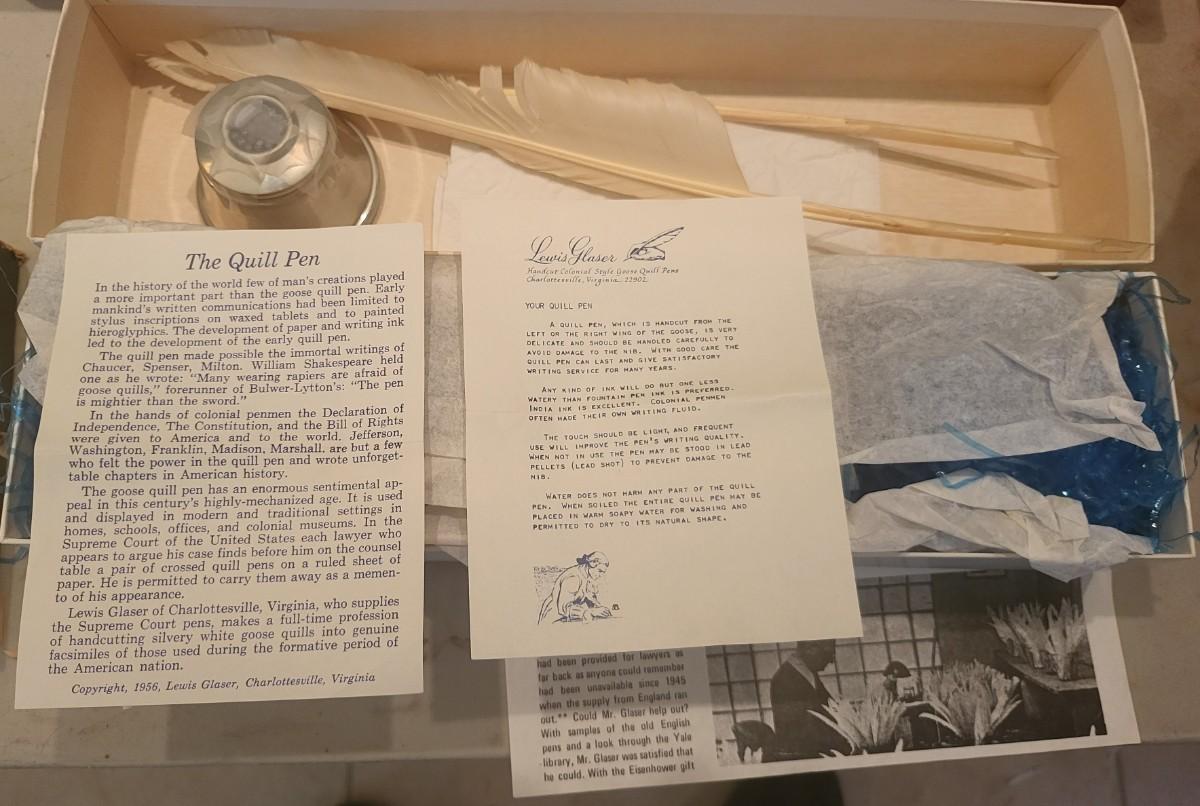 The Quill Pen
In the history of the world few of man's creations played
a more important part than the goose quill pen. Early
mankind's written communications had been limited to
stylus inscriptions on waxed tablets and to painted
hieroglyphics. The development of paper and writing ink
led to the development of the early quill pen.
The quill pen made possible the immortal writings of
Chaucer, Spenser, Milton. William Shakespeare held
one as he wrote: "Many wearing rapiers are afraid of
goose quills," forerunner of Bulwer-Lytton's: "The pen
is mightier than the sword."
In the hands of colonial penmen the Declaration of
Independence, The Constitution, and the Bill of Rights
were given to America and to the world. Jefferson,
Washington, Franklin, Madison, Marshall, are but a few
who felt the power in the quill pen and wrote unforget-
table chapters in American history.
The goose quill pen has an enormous sentimental ap-
peal in this century's highly-mechanized age. It is used
and displayed in modern and traditional settings in
homes, schools, offices, and colonial museums. In the
Supreme Court of the United States each lawyer who
appears to argue his case finds before him on the counsel
table a pair of crossed quill pens on a ruled sheet of
paper. He is permitted to carry them away as a memen-
to of his appearance.
Lewis Glaser of Charlottesville, Virginia, who supplies
the Supreme Court pens, makes a full-time profession
of handcutting silvery white goose quills into genuine
facsimiles of those used during the formative period of
the American nation.
Copyright, 1956, Lewis Glaser, Charlottesville, Virginia
Lewis Glaser
Handcut Colonial Style Goose Quill Pens
Charlottesville, Virginia 22902
YOUR QUILL PEN
A QUILL PEN, WHICH IS HANDCUT FROM THE
LEFT OR THE RIGHT WING OF THE GOOSE, IS VERY
DELICATE AND SHOULD BE HANDLED CAREFULLY TO
AVOID DAMAGE TO THE NIB. WITH GOOD CARE THE
QUILL PEN CAN LAST AND GIVE SATISFACTORY
WRITING SERVICE FOR MANY YEARS.
ANY KIND OF INK WILL DO BUT ONE LESS
WATERY THAN FOUNTAIN PEN INK IS PREFERRED.
INDIA INK IS EXCELLENT. COLONIAL PENMEN
OFTEN MADE THEIR OWN WRITING FLUID.
THE TOUCH SHOULD BE LIGHT, AND FREQUENT
USE WILL IMPROVE THE PEN'S WRITING QUALITY.
WHEN NOT IN USE THE PEN MAY BE STOOD IN LEAD
PELLETS (LEAD SHOT) TO PREVENT DAMAGE TO THE
NIB.
WATER DOES NOT HARM ANY PART OF THE QUILL
PEN. WHEN SOILED THE ENTIRE QUILL PEN MAY BE
PLACED IN WARM SOAPY WATER FOR WASHING AND
PERMITTED TO DRY TO ITS NATURAL SHAPE.
had been provided for lawyers as
far back as anyone could remember
had been unavailable since 1945
when the supply from England ran
out.** Could Mr. Glaser help out?
With samples of the old English
pens and a look through the Yale
library, Mr. Glaser was satisfied that
he could. With the Eisenhower gift